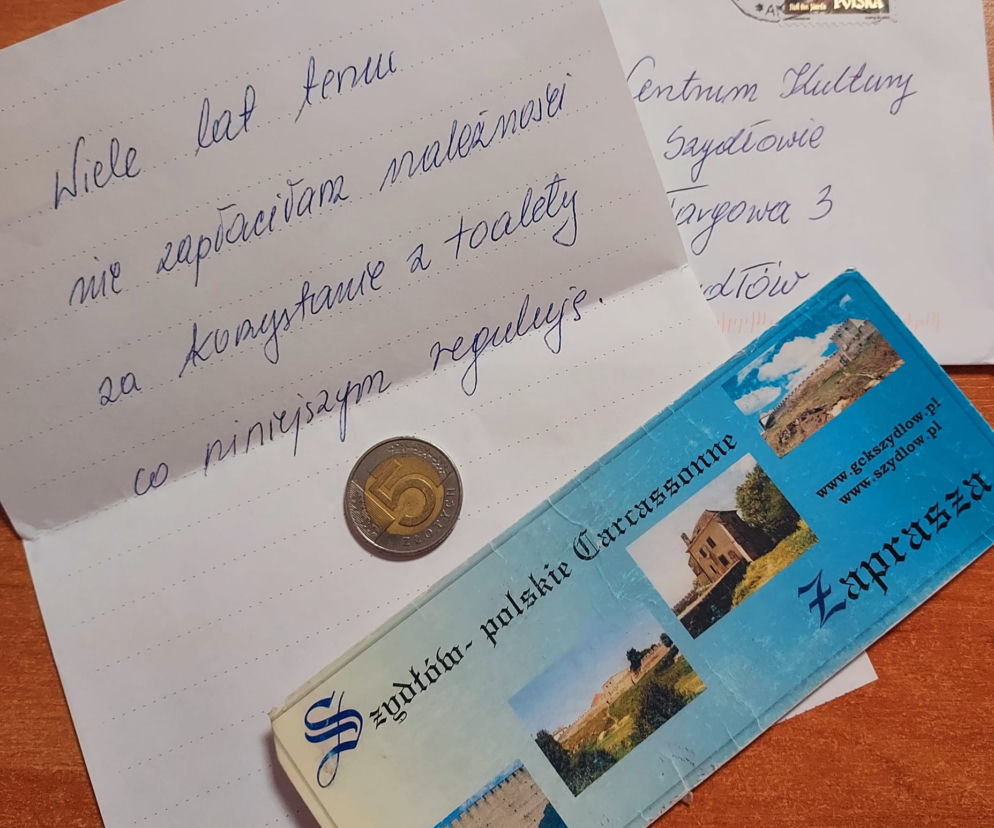 Wiele lat temu
nie zapłaciłam należności
za korzystanie z toalety
co niniejszym reguluję.
POLSKA
Centrum Kultury
Szydłowie
Targowa 3
5
ZŁOTYCH
Szydłów- polskie Carcassonne
www.gckszydlow.pl
www.szydlow.pl
Zaprasza